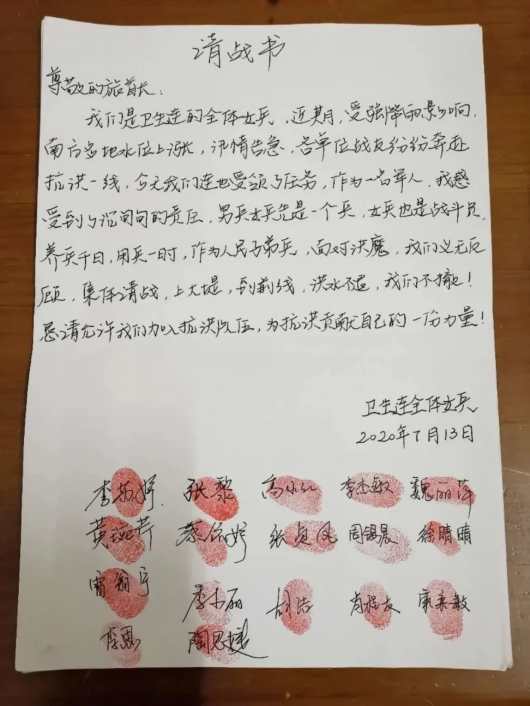 请战书
尊敬的旅首长：
我们是卫生连的全体女兵，近期，受强降雨影响，
南方多地水位上涨，汛情告急，各单位战友纷纷奔赴
抗洪一线，今天我们连也受领了任务，作为一名军人，我感
受到了沉甸甸的责任，男兵女兵先是一个兵，女兵也是战斗员，
养兵千日，用兵一时，作为人民子弟兵，面对洪魔，我们义无反
顾，集体请战，上大堤，到前线，洪水不退，我们不撤！
恳请允许我们加入抗洪队伍，为抗洪贡献自己的一份力量！
卫生连全体女兵
2020年7月13日
张黎 李杰敏 魏丽萍
张贞凤 周锡晨 徐晴晴
李小丽 胡洁
陶思媛